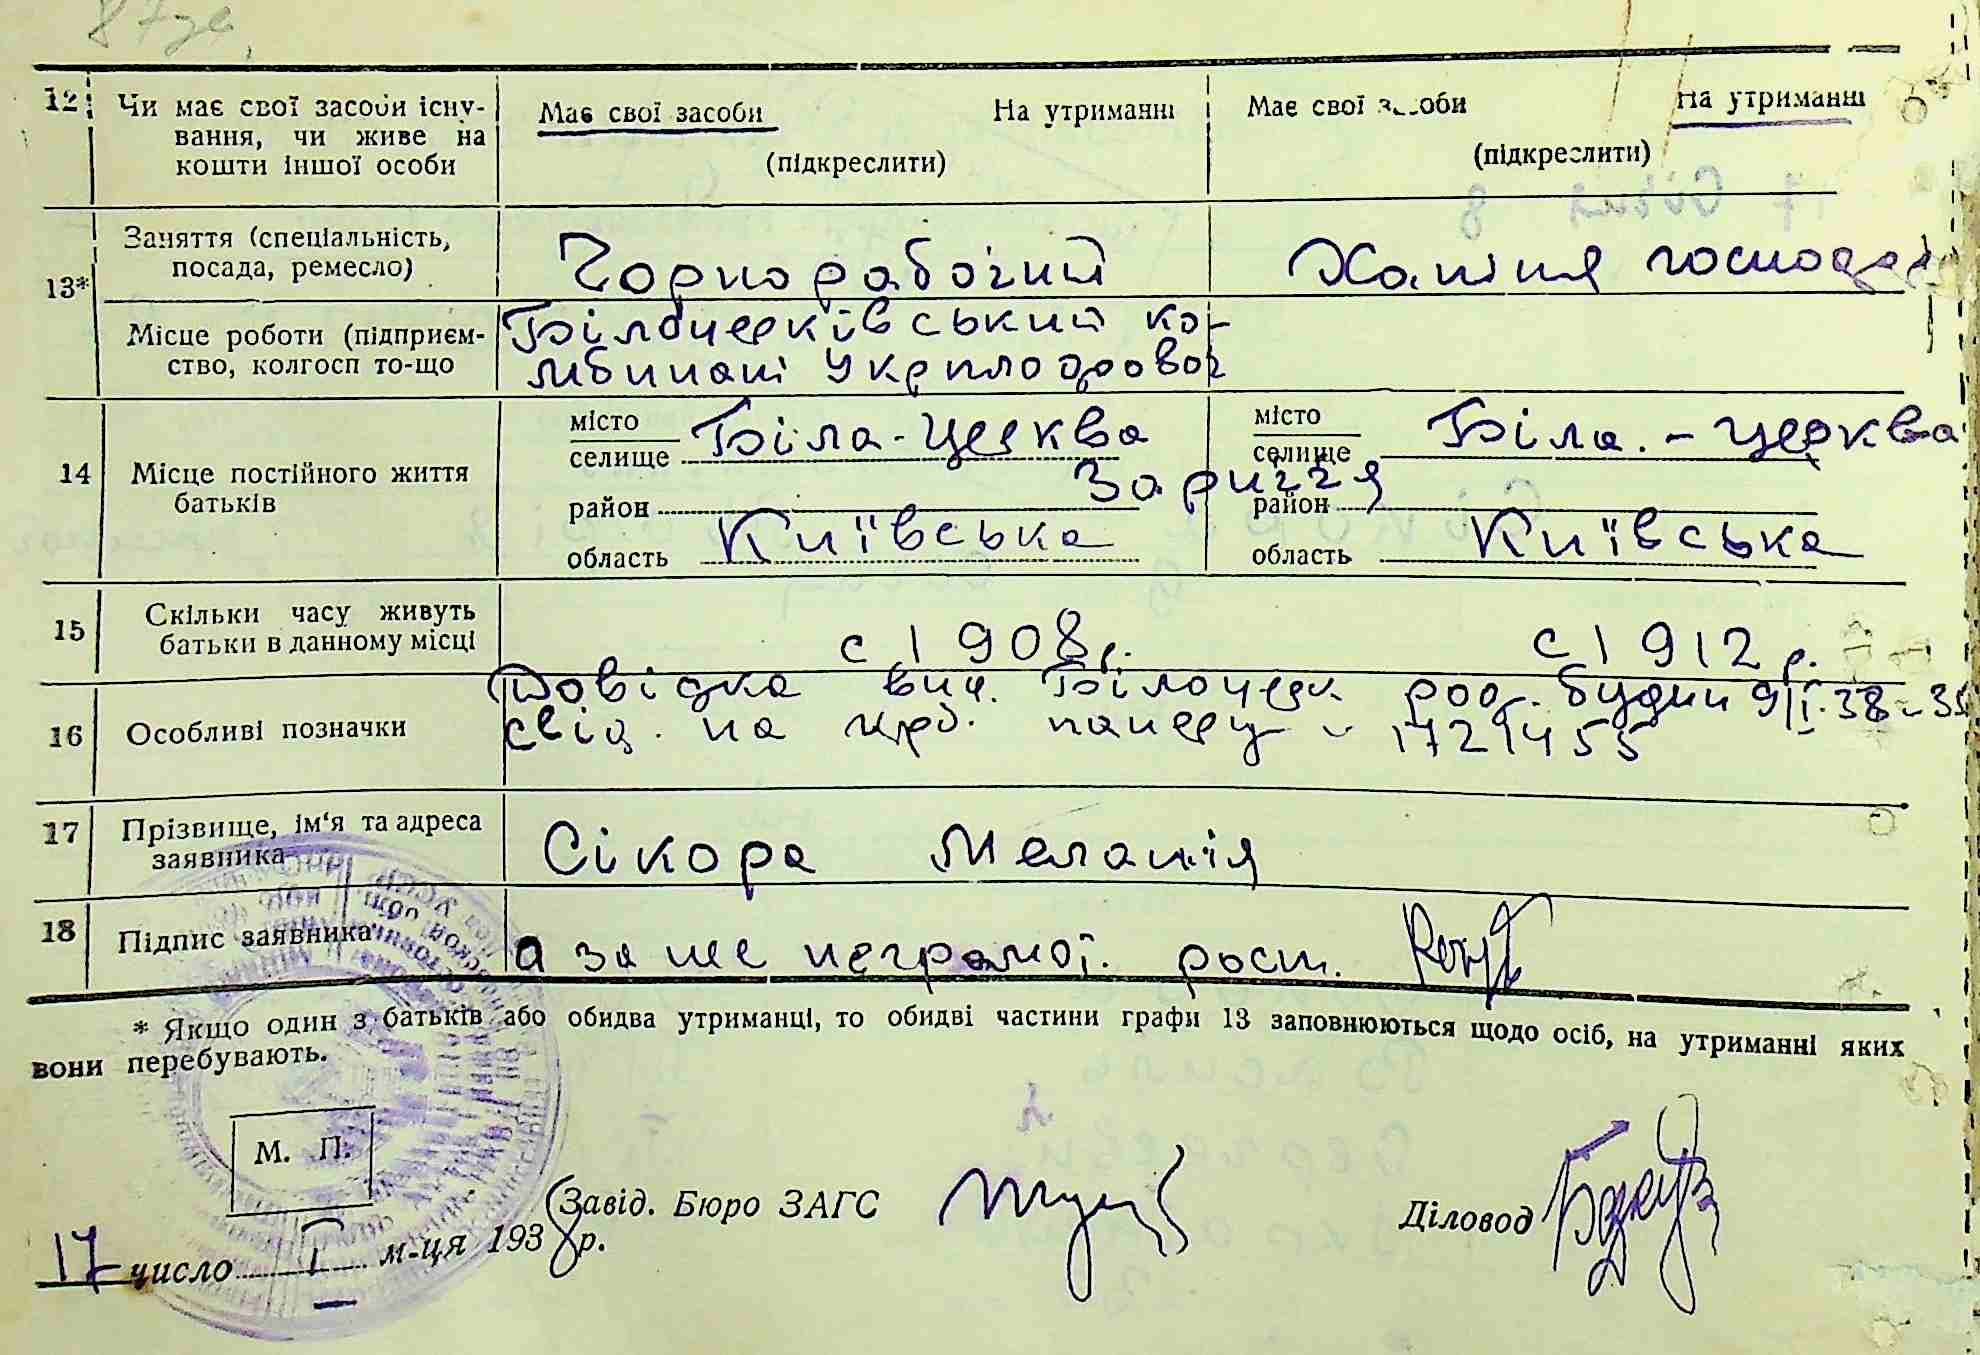 12 Чи має свої засоби існу-
вання, чи живе на
кошти іншої особи
Має свої засоби На утриманні
(підкреслити)
Має свої засоби На утриманні
(підкреслити)
13* Заняття (спеціальність,
посада, ремесло)
Чорнорабочий
Хатня господар
Місце роботи (підприєм-
ство, колгосп то-що
Білоцерківський ко-
мбинат Укрплодоовоч
14 Місце постійного життя
батьків
місто Біла-Церква
селище
Заріччя
район
область Київська
місто Біла.-Церква
селище
район
область Київська
15 Скільки часу живуть
батьки в данному місці
с 1908 р.
с 1912 р.
16 Особливі позначки
Довідка вид. Білоцерк род. будин 9/I.38
свід. на
1721455
17 Прізвище, ім'я та адреса
заявника
Сікора Меланія
18 Підпис заявника
а за неї неграмот. рост.
* Якщо один з батьків або обидва утриманці, то обидві частини графи 13 заповнюються щодо осіб, на утриманні яких
вони перебувають.
М. П.
Завід. Бюро ЗАГС
Діловод
17 число I м-ця 1938 р.